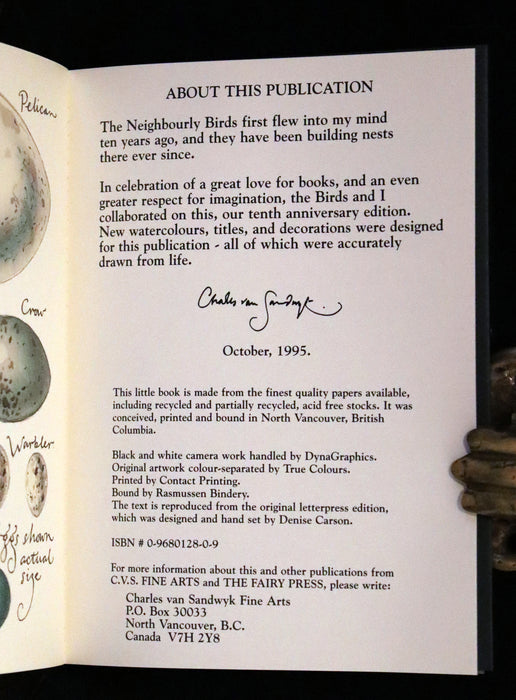 Pelican
Crow
Warbler
shown
actual
size
ABOUT THIS PUBLICATION
The Neighbourly Birds first flew into my mind
ten years ago, and they have been building nests
there ever since.
In celebration of a great love for books, and an even
greater respect for imagination, the Birds and I
collaborated on this, our tenth anniversary edition.
New watercolours, titles, and decorations were designed
for this publication - all of which were accurately
drawn from life.
Charles van Sandwyk
October, 1995.
This little book is made from the finest quality papers available,
including recycled and partially recycled, acid free stocks. It was
conceived, printed and bound in North Vancouver, British
Columbia.
Black and white camera work handled by DynaGraphics.
Original artwork colour-separated by True Colours.
Printed by Contact Printing.
Bound by Rasmussen Bindery.
The text is reproduced from the original letterpress edition,
which was designed and hand set by Denise Carson.
ISBN # 0-9680128-0-9
For more information about this and other publications from
C.V.S. FINE ARTS and THE FAIRY PRESS, please write:
Charles van Sandwyk Fine Arts
P.O. Box 30033
North Vancouver, B.C.
Canada V7H 2Y8